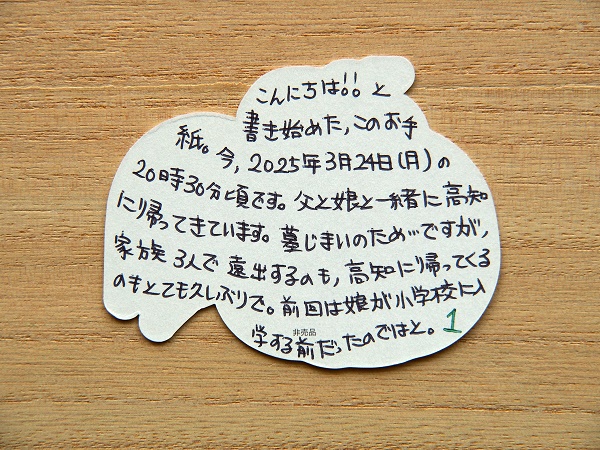 こんにちは!! と
書き始めた,このお手
紙。今, 2025年3月24日(月)の
20時30分頃です。父と娘と一緒に高知
に帰ってきています。墓じまいのため…ですが,
家族3人で遠出するのも,高知に帰ってくる
のもとても久しぶりで。前回は娘が小学校に入
学する前だったのではと。1
非売品